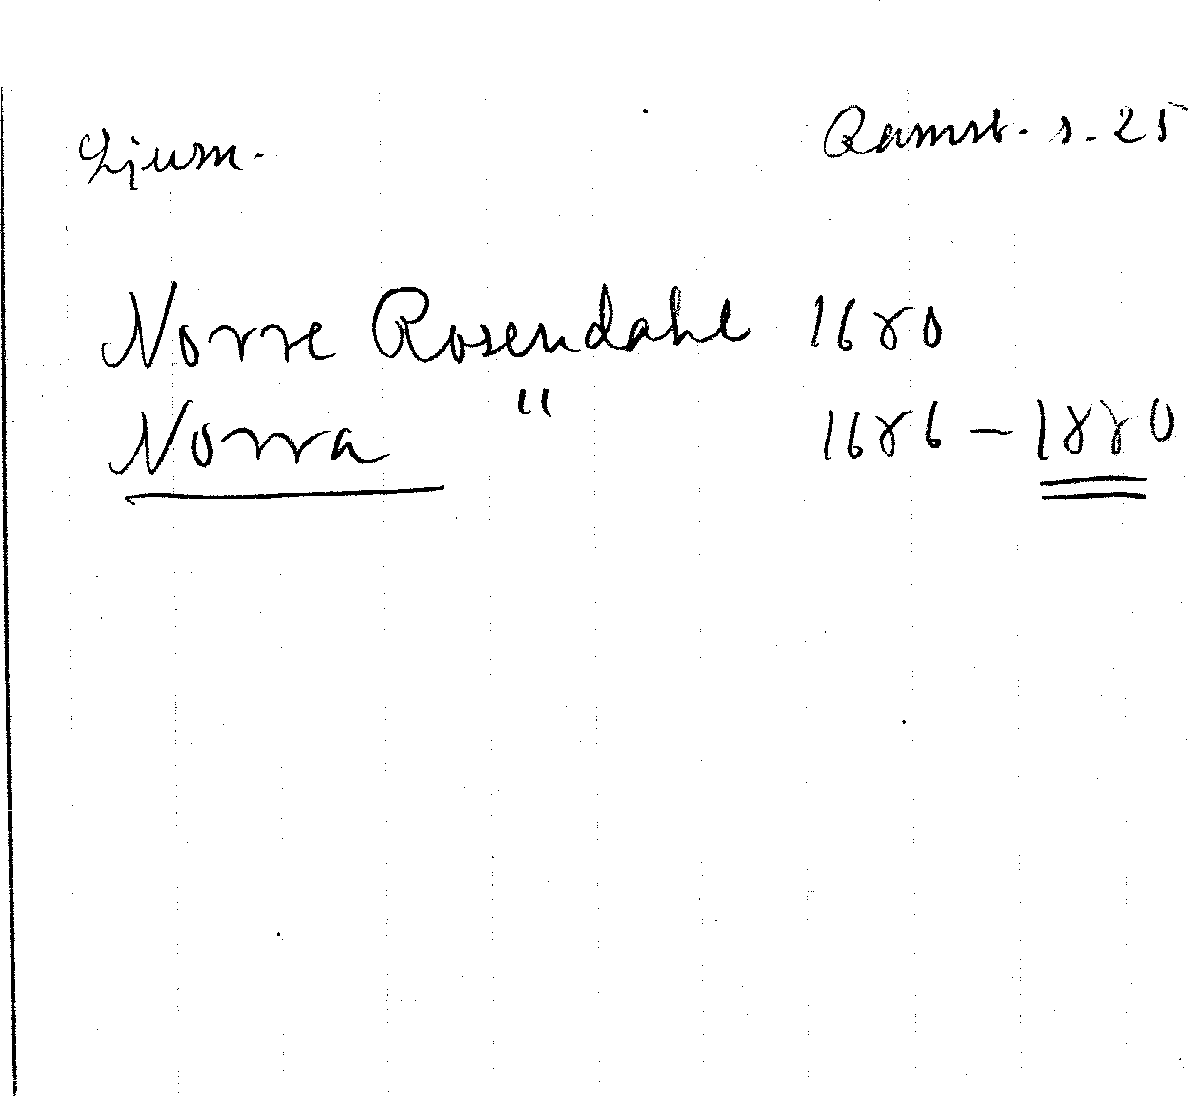 Ljusn. Ramst. s. 25
Norre Rosendahl 1680
Norra " 1686 – 1880